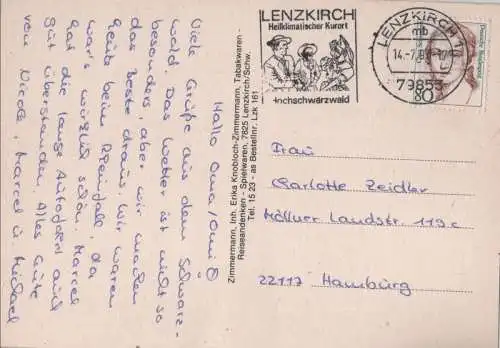 Hallo Oma/Omi
Viele Grüße aus dem Schwarz-
wald. Das Wetter ist nicht so
besonders, aber wir machen
das Beste draus. Wir waren
heute beim Rheinfall, da
war's wirklich schön. Marcel
hat die lange Autofahrt auch
gut überstanden. Alles Gute
von Nicole, Marcel u. Michael
Zimmermann, Inh. Erika Knobloch-Zimmermann, Tabakwaren -
Reiseandenken - Spielwaren, 7825 Lenzkirch/Schw.
Tel. 15 23 - as Bestellnr. Lzk 161
LENZKIRCH
Heilklimatischer Kurort
Hochschwarzwald
LENZKIRCH 1
mb
79853
80
Deutsche Bundespost
Frau
Charlotte Zeidler
Möllner Landstr. 119c
22117 Hamburg